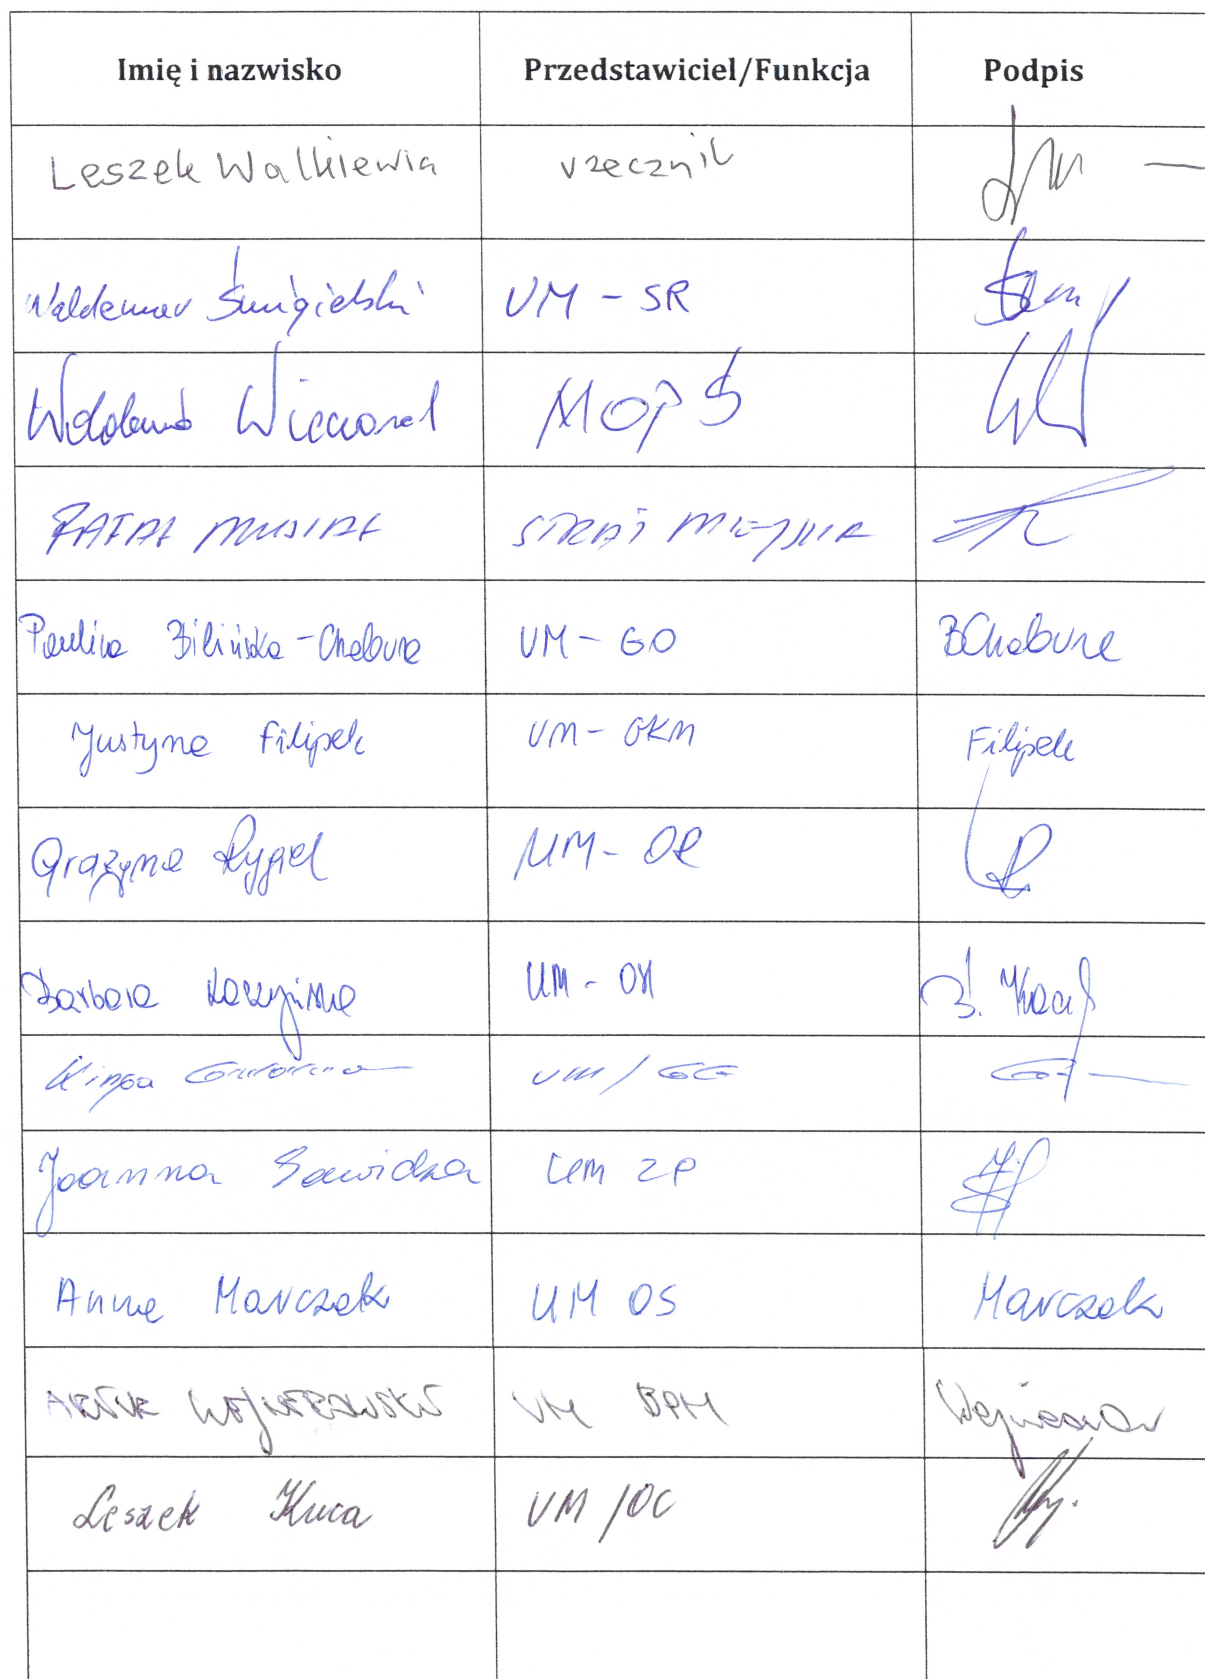 Imię i nazwisko Przedstawiciel/Funkcja Podpis
Leszek Walkiewicz rzecznik
Waldemar Śmigielski UM - SR
Wieczorek MOPS
RAFAŁ MUSIAŁ STRAŻ MIEJSKA
Paulina Bilińska-Chabura UM - GO BChabura
Justyna Filipek UM - GKM Filipek
Grażyna Rygiel UM - OR
Barbara Kaczyńska UM - OR B. Kacz
Kinga UM / GG
Joanna Sawidzka UM ZP
Anna Marczak UM OS Marczak
ARTUR UM BPM
Leszek Kuca UM / OC